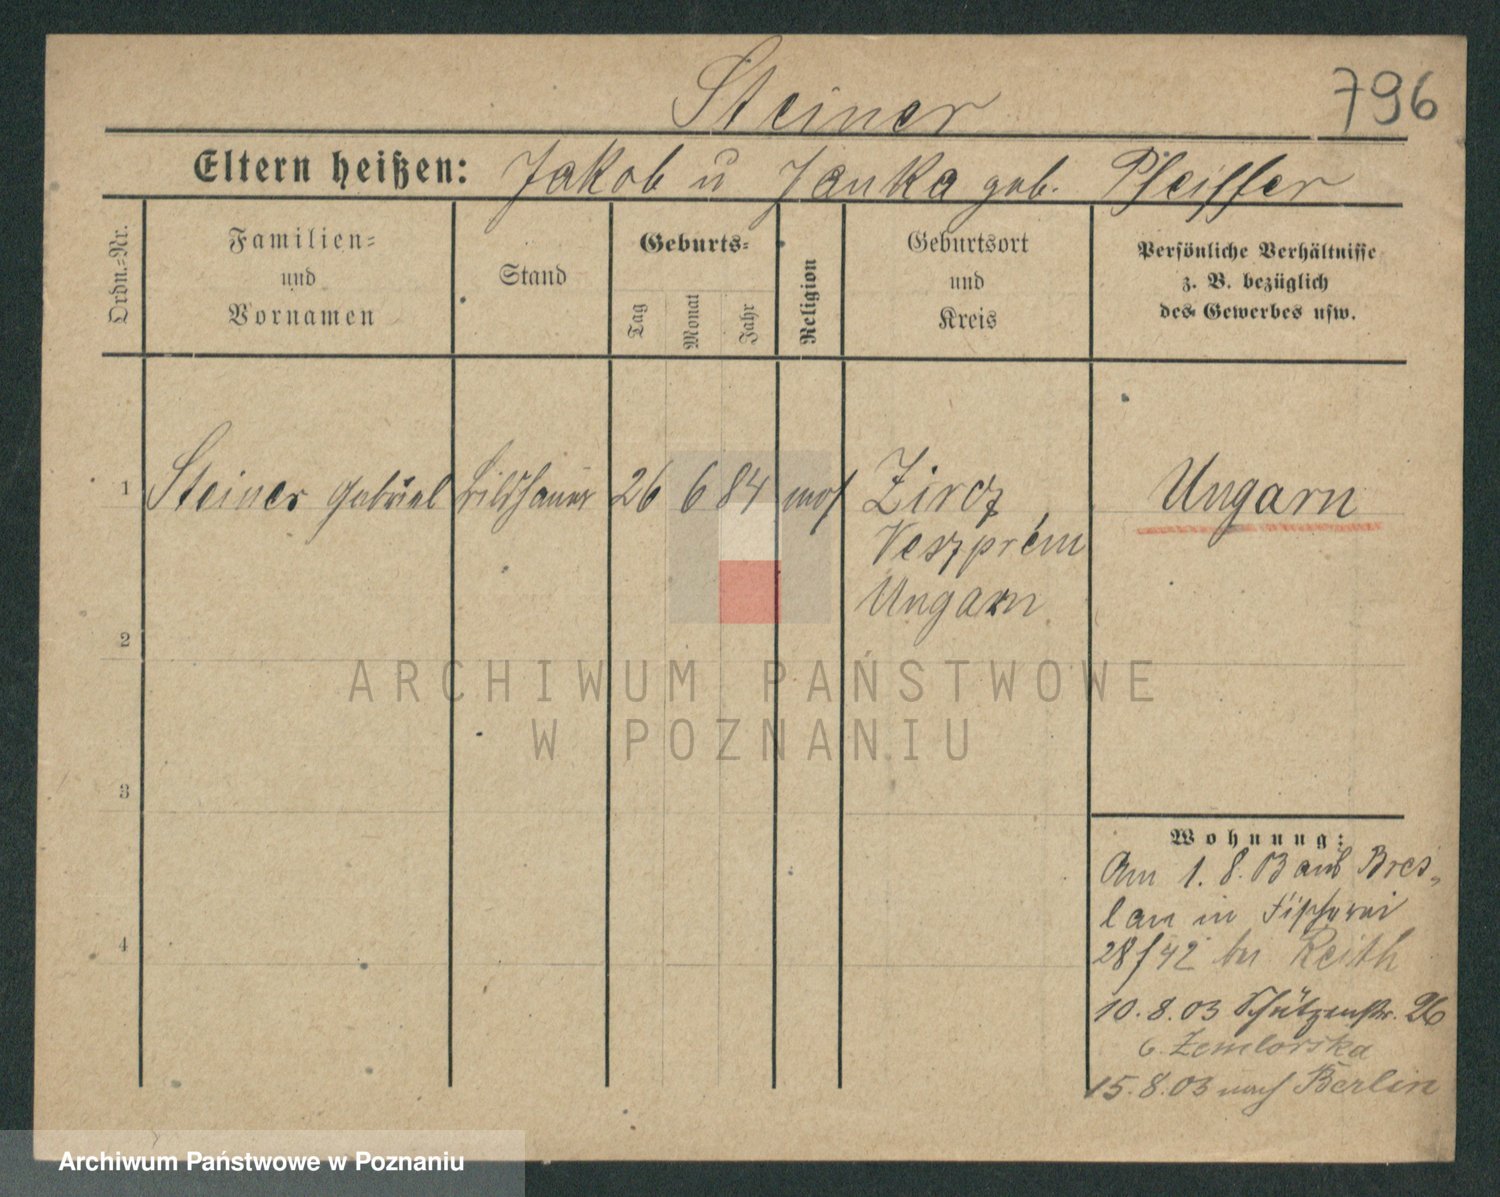 Steiner
796
Eltern heißen: Jakob u Janka geb. Pfeiffer
Ordn.-Nr.
Familien-
und
Vornamen
Stand
Geburts-
Tag
Monat
Jahr
Religion
Geburtsort
und
Kreis
Persönliche Verhältnisse
z. B. bezüglich
des Gewerbes usw.
1 Steiner Gabriel Bildhauer 26 6 84 mos Zircz Ungarn
Veszprém
Ungarn
2
3
4
Wohnung:
Am 1. 8. 03 aus Bres-
lau in Fischerei
28/42 bei Reith
10. 8. 03 Schützenstr. 26
b. Zemlorska
15. 8. 03 nach Berlin
ARCHIWUM PAŃSTWOWE
W POZNANIU
Archiwum Państwowe w Poznaniu